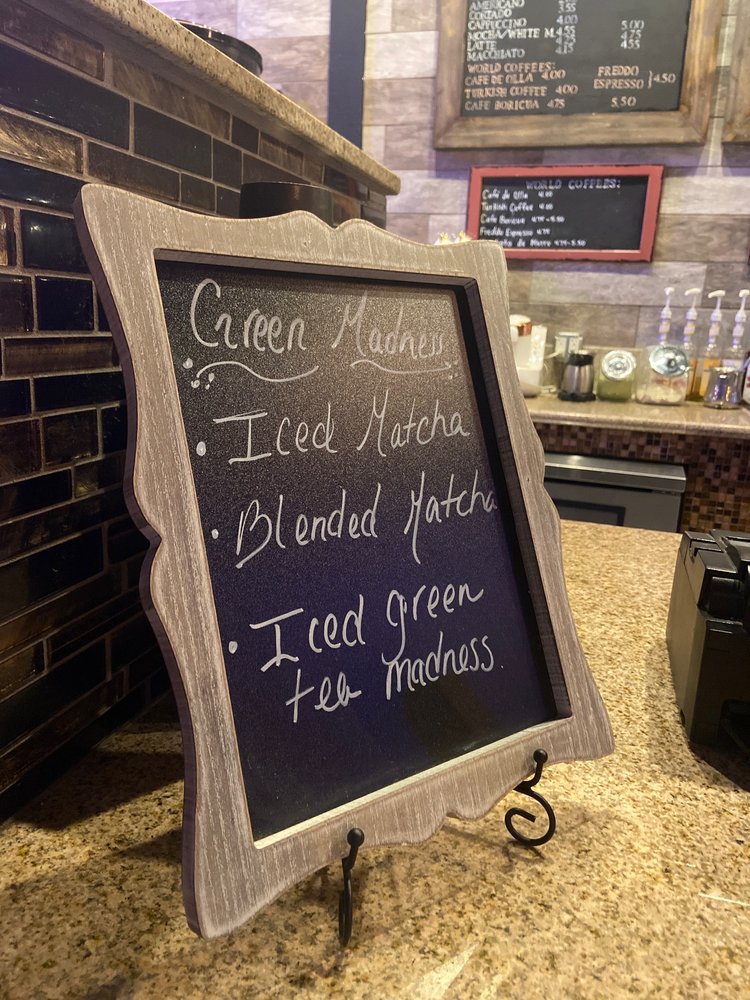 AMERICANO 3.55
CORTADO
CAPPUCCINO 4.00 5.00
MOCHA/WHITE M. 4.55 4.75
LATTE 4.55
MACCHIATO
WORLD COFFEES:
CAFE DE OLLA 4.00
TURKISH COFFEE 4.00
CAFE BORICUA 4.75 5.50
FREDDO
ESPRESSO } 4.50
WORLD COFFEES:
Café de Olla 4.00
Turkish Coffee 4.00
Café Boricua 4.75-5.50
Freddo Espresso 4.75
4.75-5.50
Green Madness
• Iced Matcha
• Blended Matcha
• Iced green
tea madness.